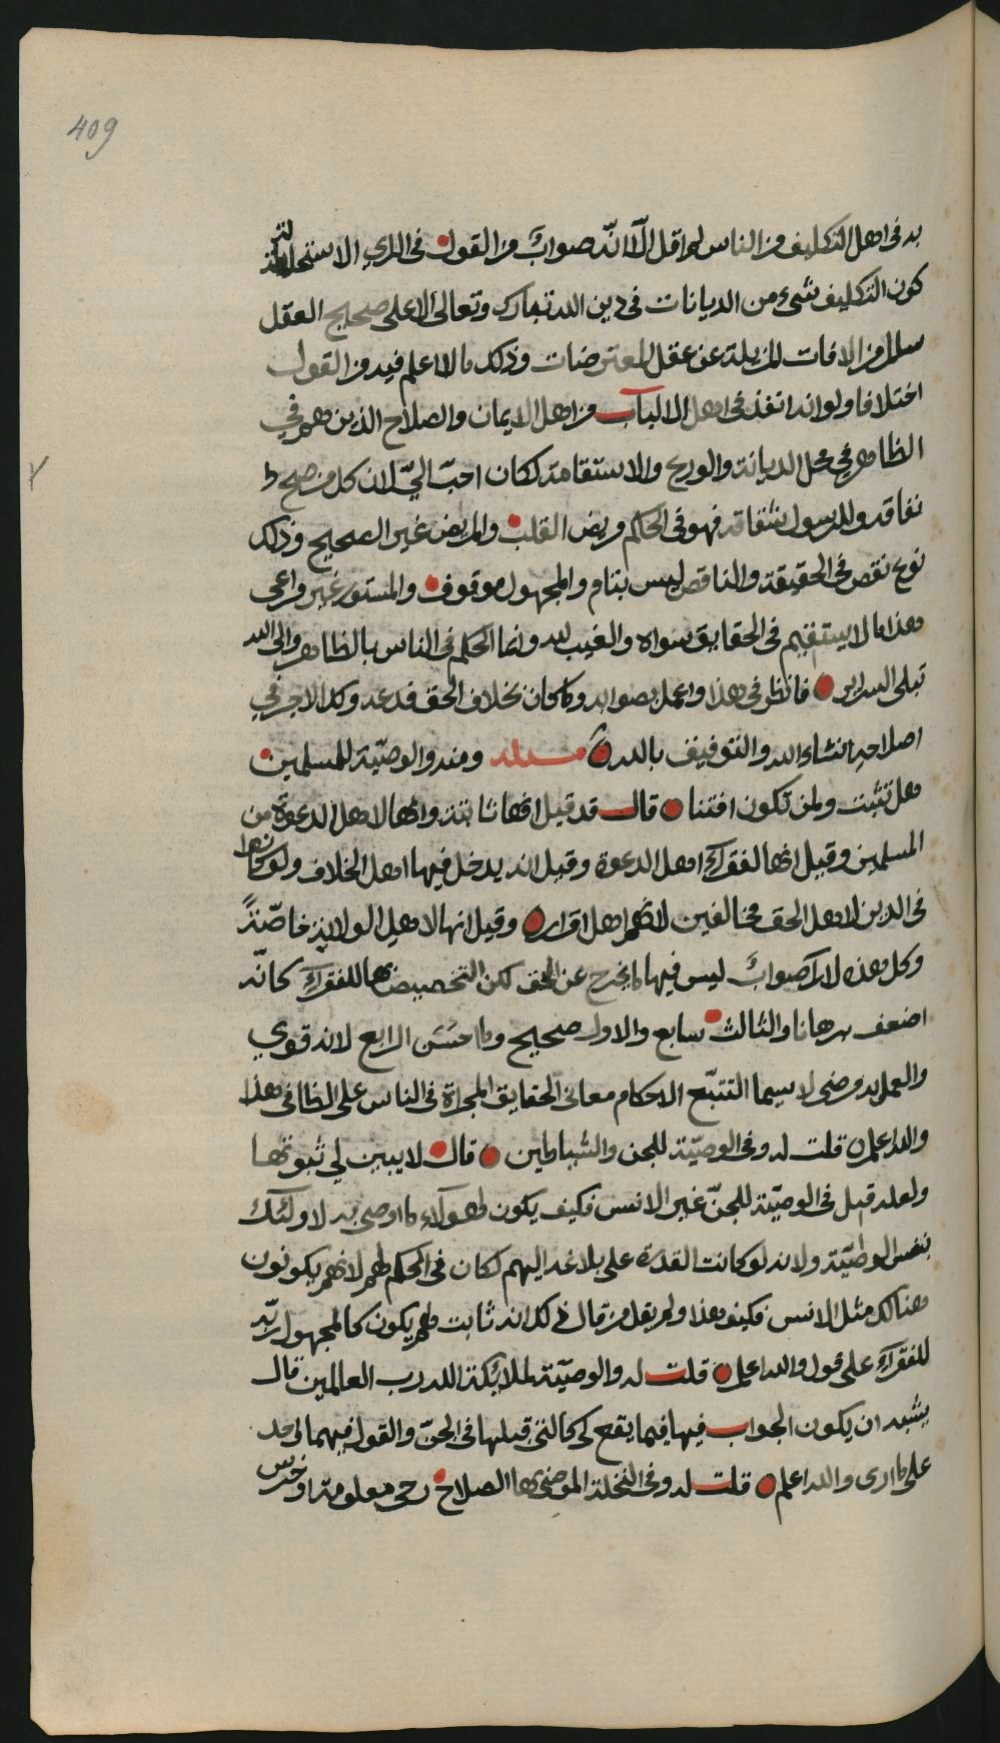 409
به في اهل التكليف من الناس لم اقل الّا انّه صوابٌ من القول في الراي الاستحالة
كون التكليف شيء من الديانات في دين الله تبارك وتعالى الا على صحيح العقل
سالم من الافات المزيلة عن عقل المعترضات وذلك ما لا اعلم فيه من القول
اختلافا ولو انه انفذ في اهل الالباب من اهل الايمان والصلاح الذين هم في
الظاهر في محل الديانة والورع والاستقامة لكان احبّ اليّ لان كل من صح
نفاقه وللرسول شقاقه فهو في الحكم مريض القلب والمريض غير الصحيح وذلك
نوع نقص في الحقيقة والناقص ليس بتام والمجهول موقوف والمستور غير مراعى
هذا ما لا يستقيم في الحقايق سواه والغيب لله وانما الحكم في الناس بالظاهر والى الله
تبلى السراير فانظر في هذا واعمل بصوابه وما كان بخلاف الحق فدعه ولك الاجر في
اصلاحه انشاء الله والتوفيق بالله مسئلة ومنه والوصيّة للمسلمين
هل تثبت ولمن تكون افتنا قال قد قيل انها ثابتة وانها لاهل الدعوة من
المسلمين وقيل انها لفقراء اهل الدعوة وقيل انه يدخل فيها اهل الخلاف ولو كانوا
في الدين لاهل الحق مخالفين لانهم اهل اقرار وقيل انها لاهل الولاية خاصّةً
وكل هذه الاراء صوابٌ ليس فيها ما يخرج عن الحق لكن التخصيص بها للفقراء كانّه
اضعف برهانا والثالث سايغ والاول صحيح وما احسَنَ الرابع لانه قوي
والعمل به مرضي لا سيما التتبّع الاحكام معاني الحقايق المجراة في الناس على الظا في هذا
والله اعلم قلت له وفي الوصيّة للجن والشياطين قال لا يبين لي ثبوتها
ولعله قيل في الوصيّة للجنّ غير الانس فكيف يكون لهؤلاء ما اوصي به لاولئك
بنفس الوصيّة ولانه لو كانت القدرة على بلاغه اليهم لكان في الحكم لهم لانهم يكونون
هنالك مثل الانس فكيف هذا ولم يقل من قال في ذلك انه ثابت لهم يكون كالمجهول ربّه
للفقراء على قول والله اعلم قلت له والوصيّة لملائكة الله رب العالمين قال
يشبه ان يكون الجواب فيها فيما يقع لي كالتي قبلها في الجنّ والقول فيهما واحد
على ما ارى والله اعلم قلت له وفي النخلة الموصى بها الصلاح رحى معلومة او خرس